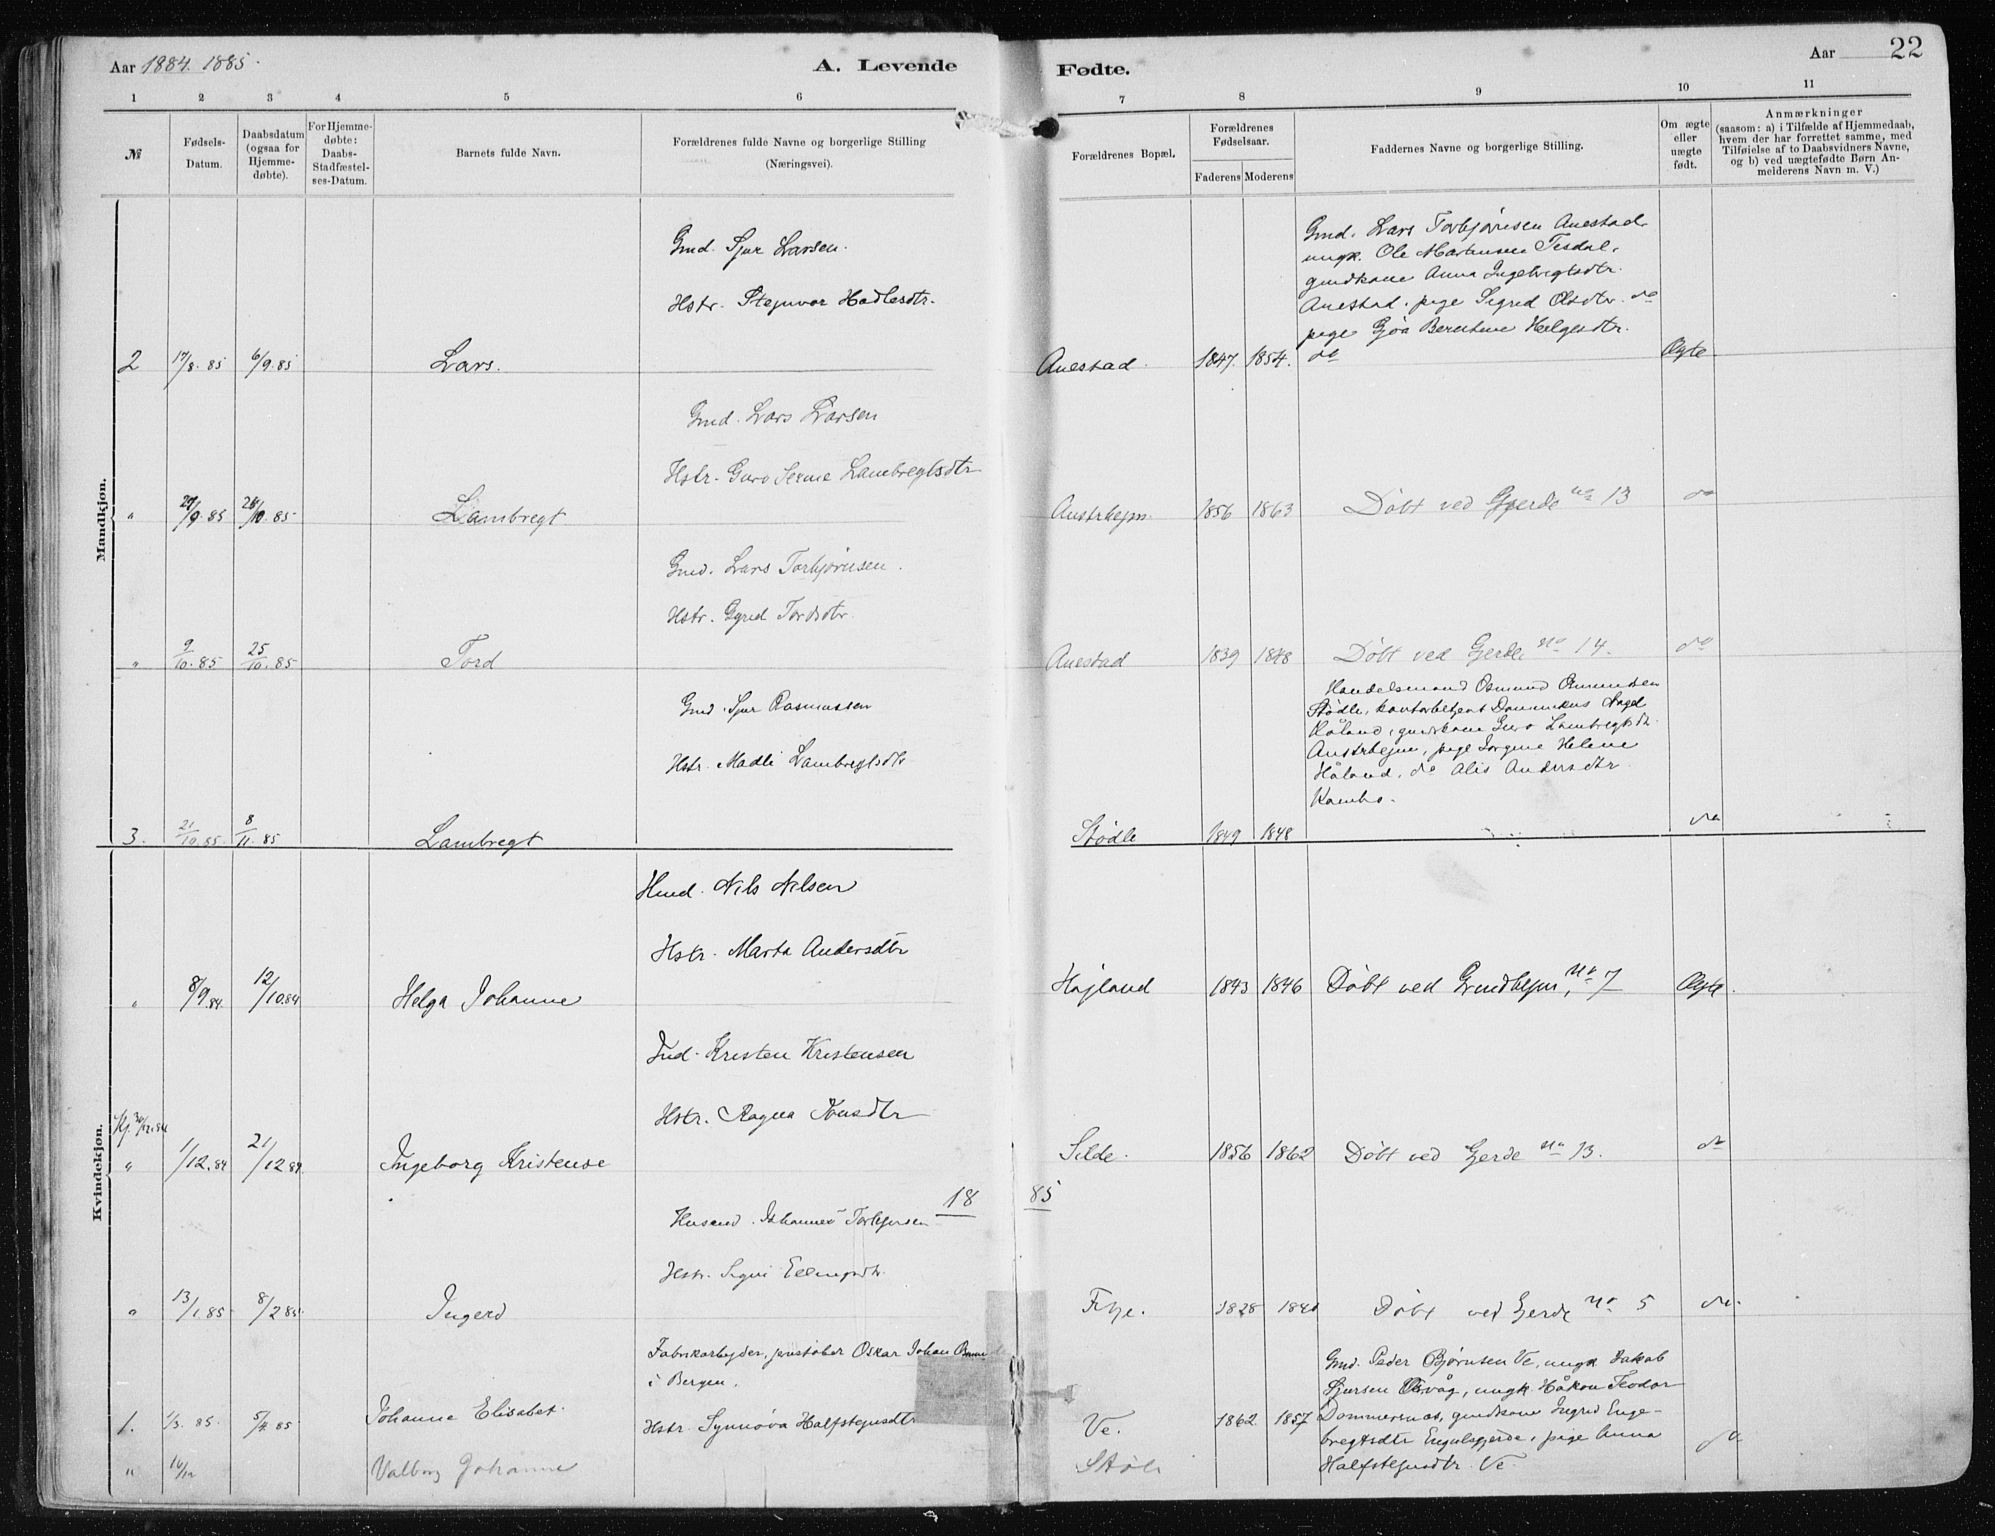 Aar 1884. 1885.
A. Levende
Fødte.
Aar
22
1 2 3 4 5 6 7 8 9 10 11
№
Fødsels-
Datum.
Daabsdatum
(ogsaa for
Hjemme-
døbte).
For Hjemme-
døbte:
Daabs-
Stadfæstel-
ses-Datum.
Barnets fulde Navn.
Forældrenes fulde Navne og borgerlige Stilling
(Næringsvei).
Forældrenes Bopæl.
Forældrenes
Fødselsaar.
Faderens Moderens
Faddernes Navne og borgerlige Stilling.
Om ægte
eller
uægte
født.
Anmærkninger
(saasom: a) i Tilfælde af Hjemmedaab,
hvem der har forrettet samme, med
Tilføielse af to Daabsvidners Navne,
og b) ved uægtefødte Børn An-
melderens Navn m. V.)
Mandkjøn.
Gmd. Sjur Larsen.
Hstr. Stejnvor Hadlesdtr.
2 17/8. 85 6/9. 85 Lars.
Anestad. 1847. 1854.
Gmd. Lars Torbjørnsen Anestad
ungk. Ole Martinsen Tesdal,
gmdkone Anna Ingebregtsdtr.
Anestad. pige Sigrid Olsdtr. do
pige Gjøa Berntine Helgesdtr.
do
Ægte
Gmd. Lars Larsen
Hstr. Guro Serine Lambregtsdtr
" 29/9. 85 28/10. 85 Lambregt
Austrhejm. 1856 1863 Døbt ved Gjerde No 13 do
Gmd. Lars Torbjørnsen.
Hstr. Gyrid Tordsdtr.
" 9/10. 85 25/10. 85 Tord
Anestad 1839 1848 Døbt ved Gjerde No 14. do
Gmd. Sjur Rasmussen
Hstr. Madli Lambregtsdtr
3. 21/10. 85. 8/11. 85 Lambregt
Stødle 1849 1848
Handelsmand Osmund Osmundsen
Stødle, kontorbetjent Dominikus Nagel
Håland, gmdkone Guro Lambregtsdtr.
Austrhejm, pige Jorgine Helene
Håland, do Alis Andersdtr
Kambo.
do
Kvindekjøn.
Hmd. Nils Nilsen
Hstr. Marta Andersdtr
" 8/9. 84 12/10. 84 Helga Johanne
Højland 1843 1846 Døbt ved Grindhejm, No 7 Ægte.
Ind. Kristen Kristensen
Hstr. Ragna Jonsdtr
" 1/12. 84 21/12 84 Ingeborg Kristense
Silde. 1856 1862 Døbt ved Gjerde No 13. do
1885
Husmd. Johannes Torbjørnsen
" 13/1. 85 8/2 85 Ingerd
Frje. 1828 1840 Døbt ved Gjerde No 5 do.
Fabrikarbejder, Oskar Johan
i Bergen.
Hstr. Synnøva Halfstejnsdtr
1. 1/3. 85. 85 Johanne Elisabet
Ve. 1862 1857
Gmd. Peder Bjørnsen Ve, ungk Jakob
Sjursen Osvåg, ungk. Håkon Teodor
Dommersnes, gmdkone Ingrid Enge-
bregtsdtr Engelsgjerde, pige Anna
Halfstejnsdtr. Ve.
do
" Valborg Johanne